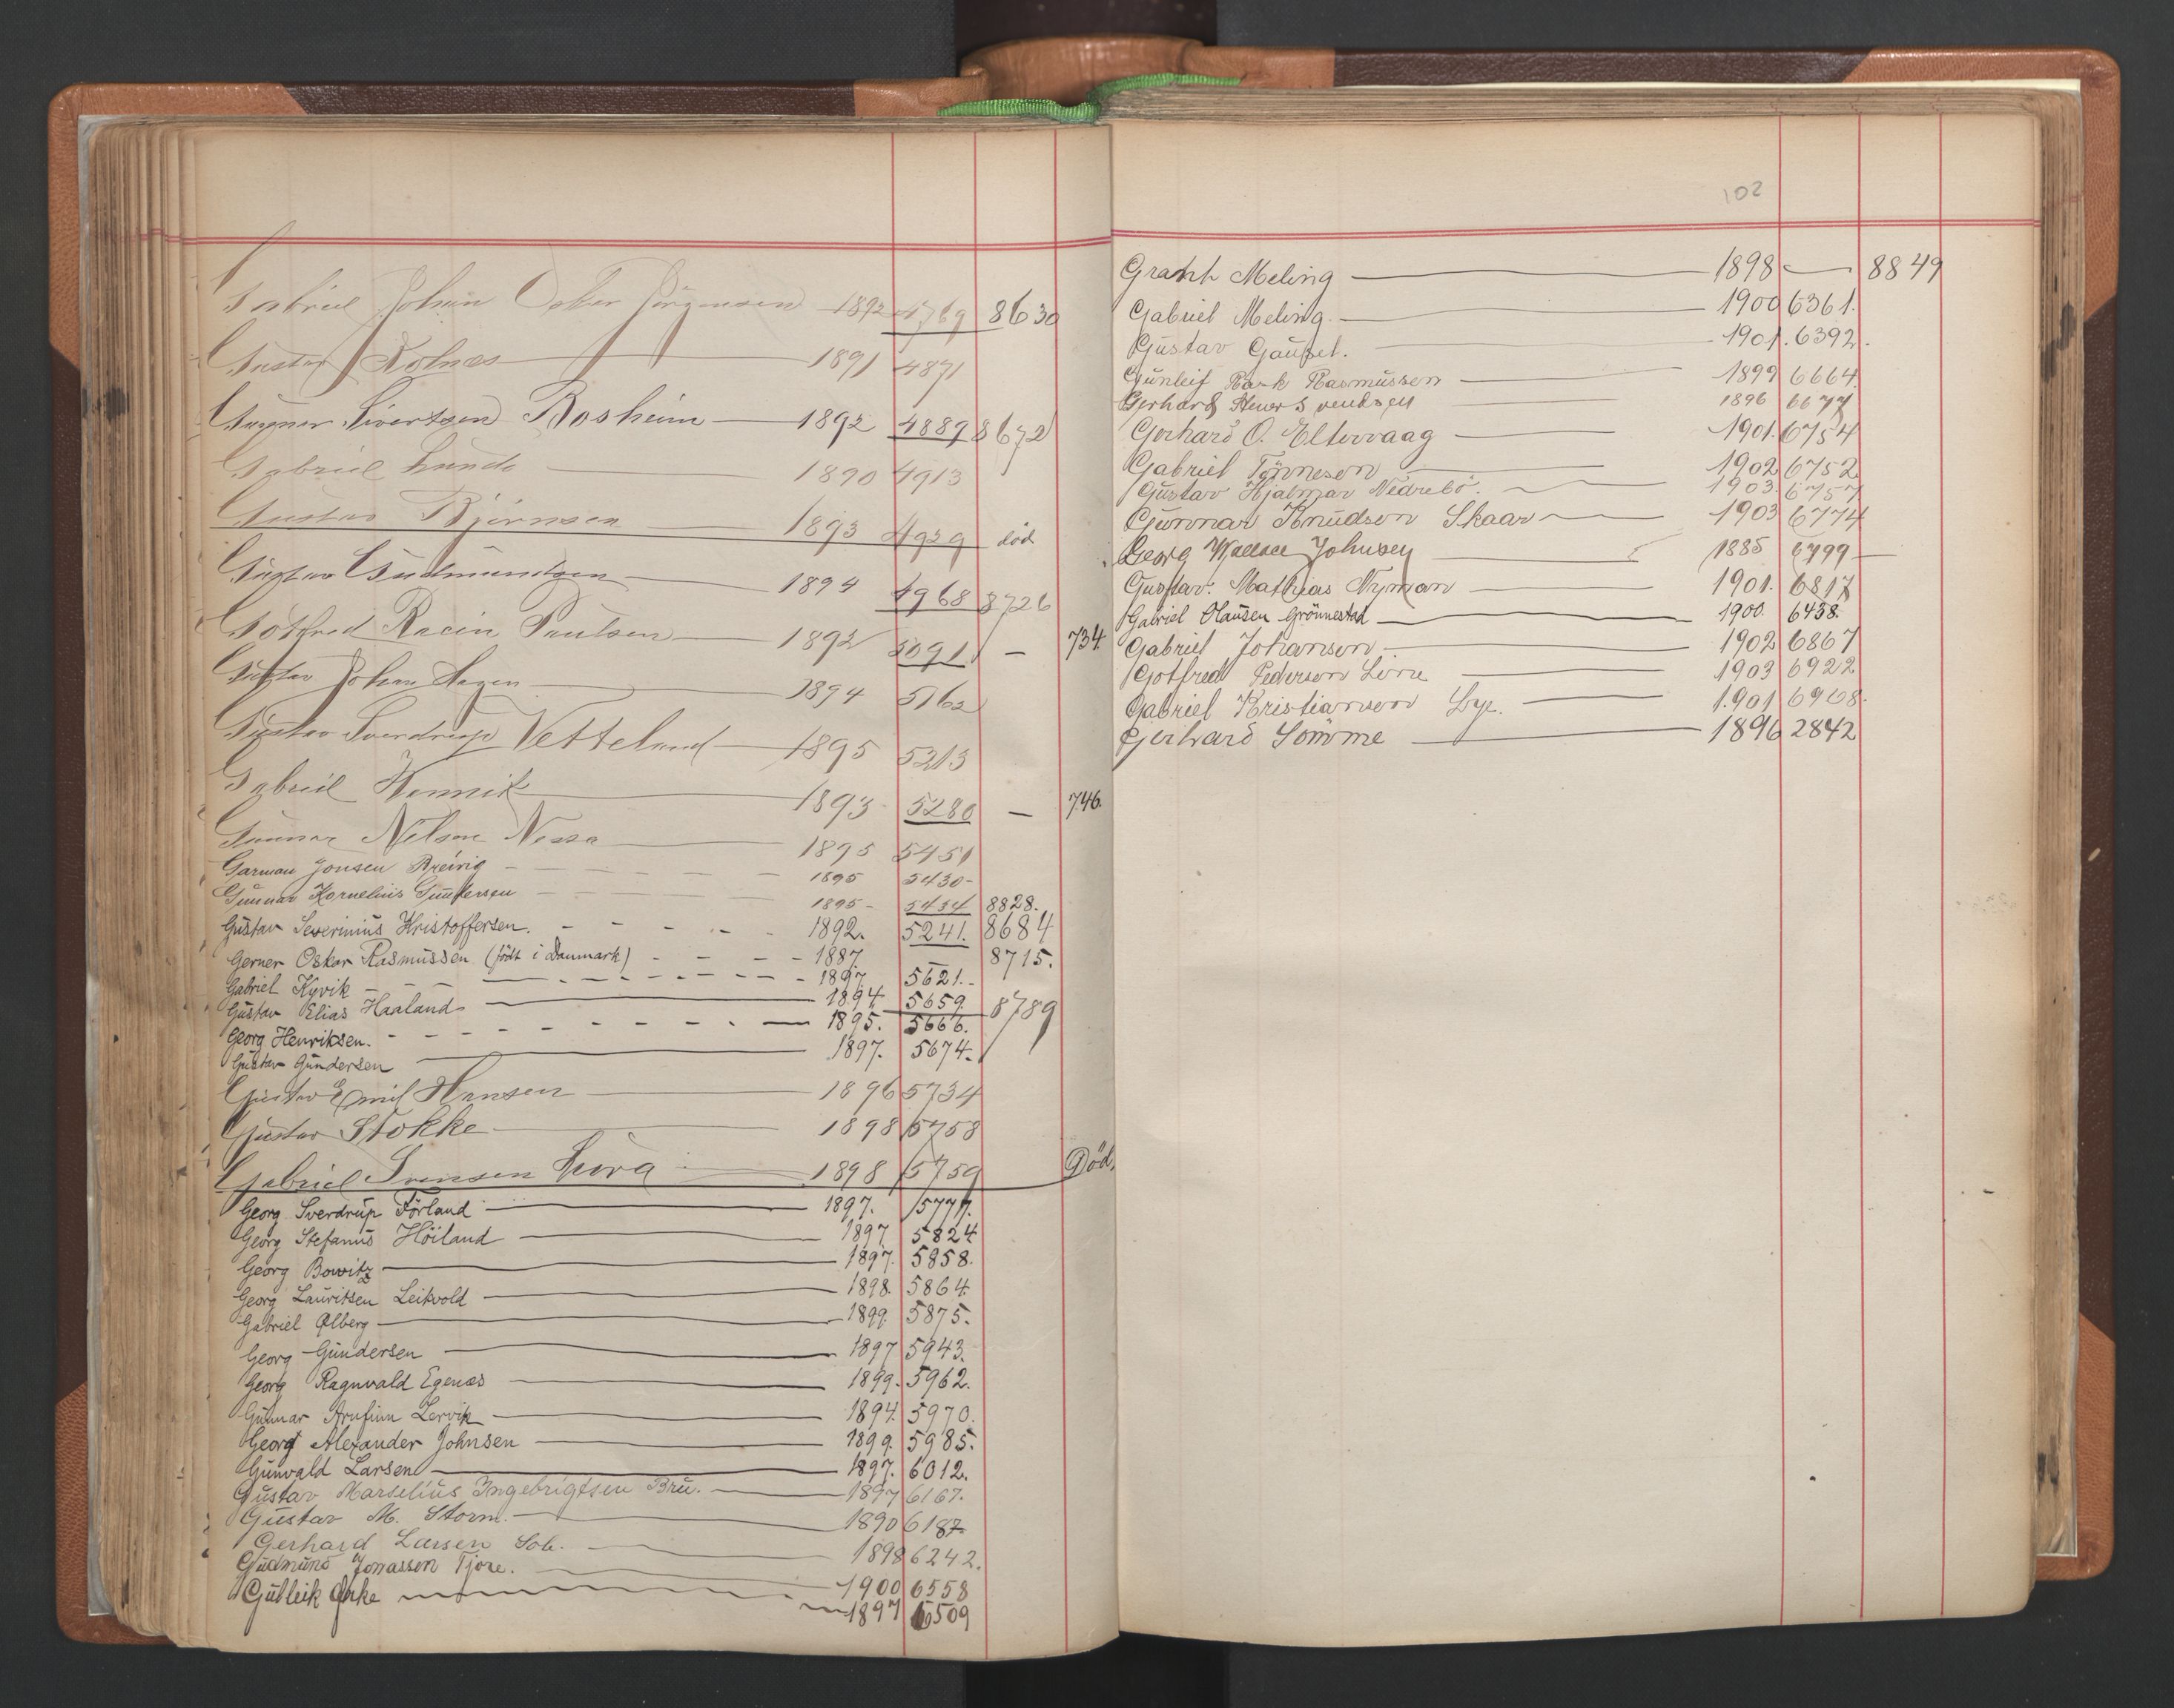 Gabriel Johan Oskar Jörgensen 1892 4769 8630
Gustav Kolnes 1891 4871
Sivertsen Bosheim 1892 4889 8672
Gabriel Lunde 1890 4913
Gustav Björnsen 1893 4939 död
Gustav Gudmundsen 1894 4968 8726
Gotfred Racin Paulsen 1892 5091 — 734
Gustav Johan Hagen 1894 5162
Gustav Sverdrup Vetteland 1895 5213
Gabriel Kennik 1893 5280 — 746.
Gunnar Nelson Nessa 1895 5451
Garman Jonsen Breivig 1895 5430-
Gunnar Kornelius Gundersen 1895- 5434 8828.
Gustav Severinius Kristoffersen. 1892. 5241. 8684
Gerner Oskar Rasmussen (födt i Danmark) 1887 — 8715.
Gabriel Kyvik 1897. 5621.-
Gustav Elias Haaland 1894 5659 8789
Georg Henriksen. 1895. 5666.
Gustav Gundersen 1897. 5674.
Gustav Emil Hansen 1896 5734
Gustav Stokke 1898 5758
Gabriel Svensen 1898 5759 Död.
Georg Sverdrup Förland 1897. 5777.
Georg Stefanus Höiland 1897 5824
Georg Bowitz 1897. 5858.
Georg Lauritsen Leikvold 1898. 5864.
Gabriel Ølberg 1899. 5875.
Georg Gundersen 1897 5943.
Georg Ragnvald Egenæs 1899. 5962.
Gunnar Arnfinn Lervik 1894. 5970.
Georg Alexander Johnsen 1899. 5985.
Gunvald Larsen 1897. 6012.
Gustav Marselius Ingebrigtsen Bru. 1897 6167.
Gustav M. Storm. 1890 6187
Gerhard Larsen Sol. 1898 6242.
Gudmund Jonassen Tjore. 1900 6558
Gulleik Jerke 1897 6509
102
Grant Meling 1898 — 8849
Gabriel Meling. 1900 6361.
Gustav Gausel. 1901. 6392.
Gunleif Bark Rasmussen 1899 6664.
Gerhard Stener Svendsen 1896 6677
Gerhard O. Eltervaag 1901. 6754
Gabriel Tönneson 1902 6752
Gustav Hjalmar Nedrebö. 1903. 6757
Gunnar Knudson Skaar 1903 6774
Georg Wallace Johnsen 1885 6799
Gustav. Mathias Nyman 1901. 6817
Gabriel Hansen Grönnestad 1900. 6438.
Gabriel Johanson 1902 6867
Gotfred Pederson Lorre 1903 6922
Gabriel Kristianson Lye. 1.901 6908.
Gerhard Sömme 1896 2842